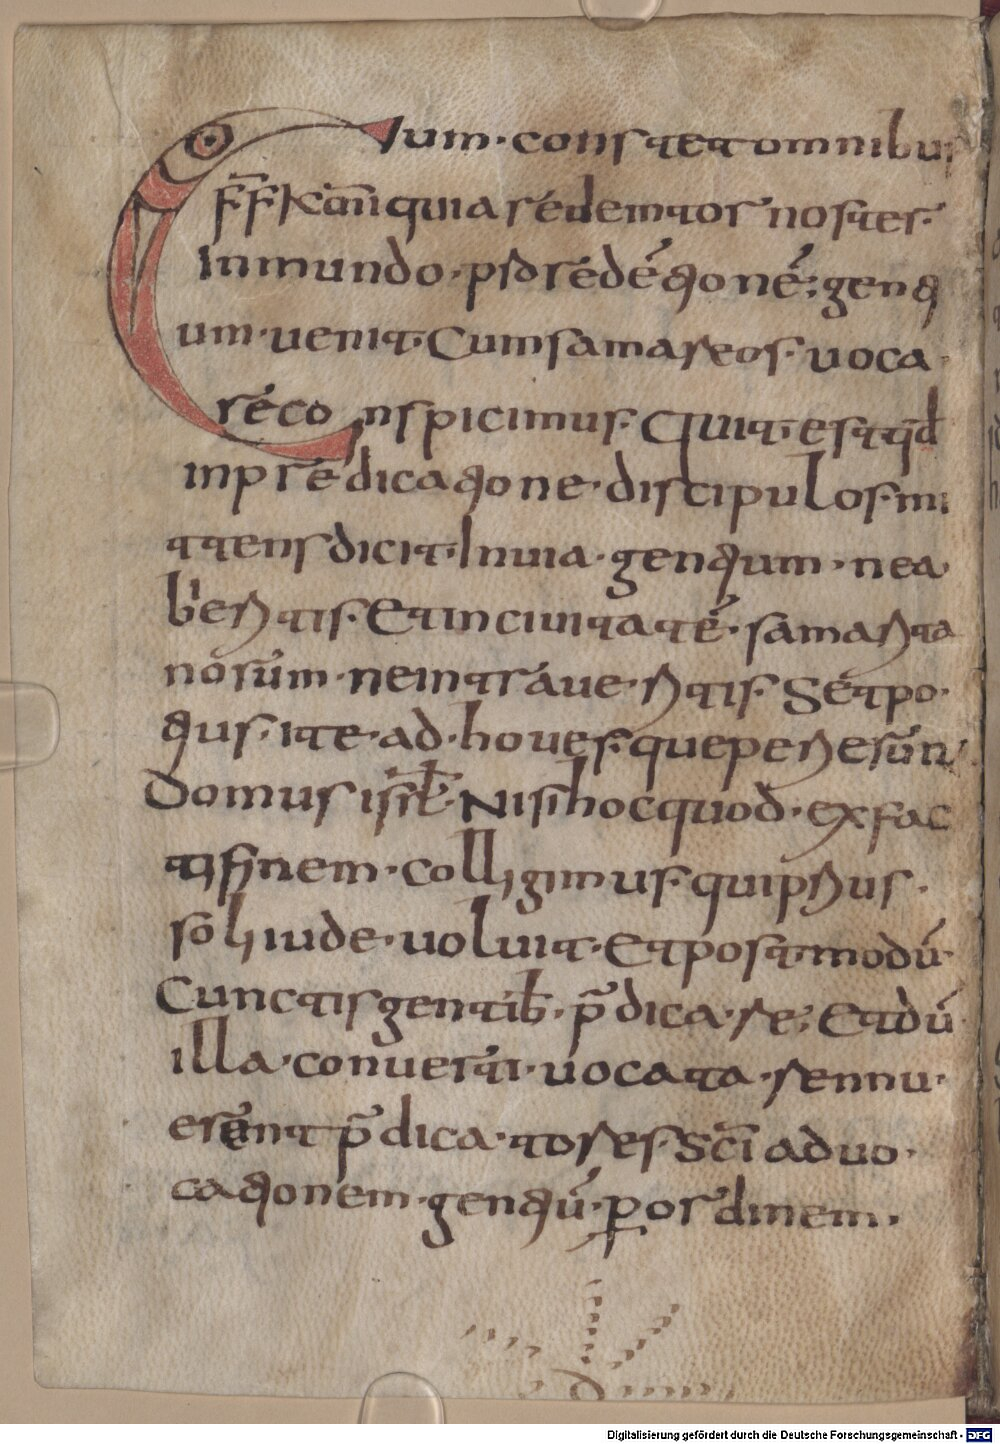 Cum · constet omnibus
f̄f̄ kar̄ı quia redemtor noster ·
In mundo · p̱ redéti one᷄ ; genti
um · uenit · Cum samareos · uoca ·
re co nspicimus · Quit · est qđ
in predicatione · discipulos · mi
ttens dicit · In uia · gentium · nea ·
b'eritis · Et in ciuitaté · samarita
norum · ne intraue · ritis · Set po ·
tius · ite · ad · houes · que perierun
Domus isr̄ł · Nisi hoc quod · ex fac
ti finem · colligimus · qui prius ·
soli iude · uoluit · Et post · modū ·
Cunctis gentib̄ · p̄dica · re ; Et dū ·
illa · conuerti · uocata · rennu ·
erent p̄dica · tores · Sc̄ı ad uo ·
cationem · gentiū · ꝑ ordinem ·
Digitalisierung gefördert durch die Deutsche Forschungsgemeinschaft - DFG